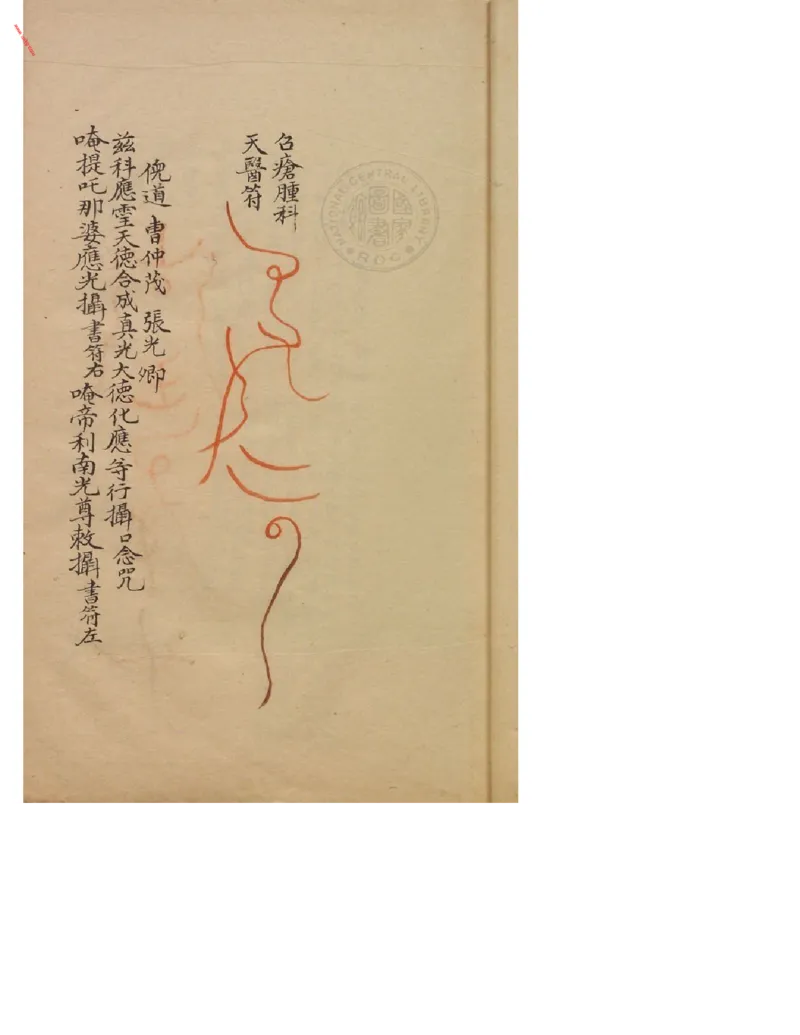 召瘡腫科
天醫符
倪道 曹仲茂 張光卿
茲科應霊天德合成真光大德化應等行攝口念咒
唵提吒那婆應光攝書符右唵帝利南光尊敕攝書符左
NATIONAL CENTRAL LIBRARY
ROC
國家圖書館